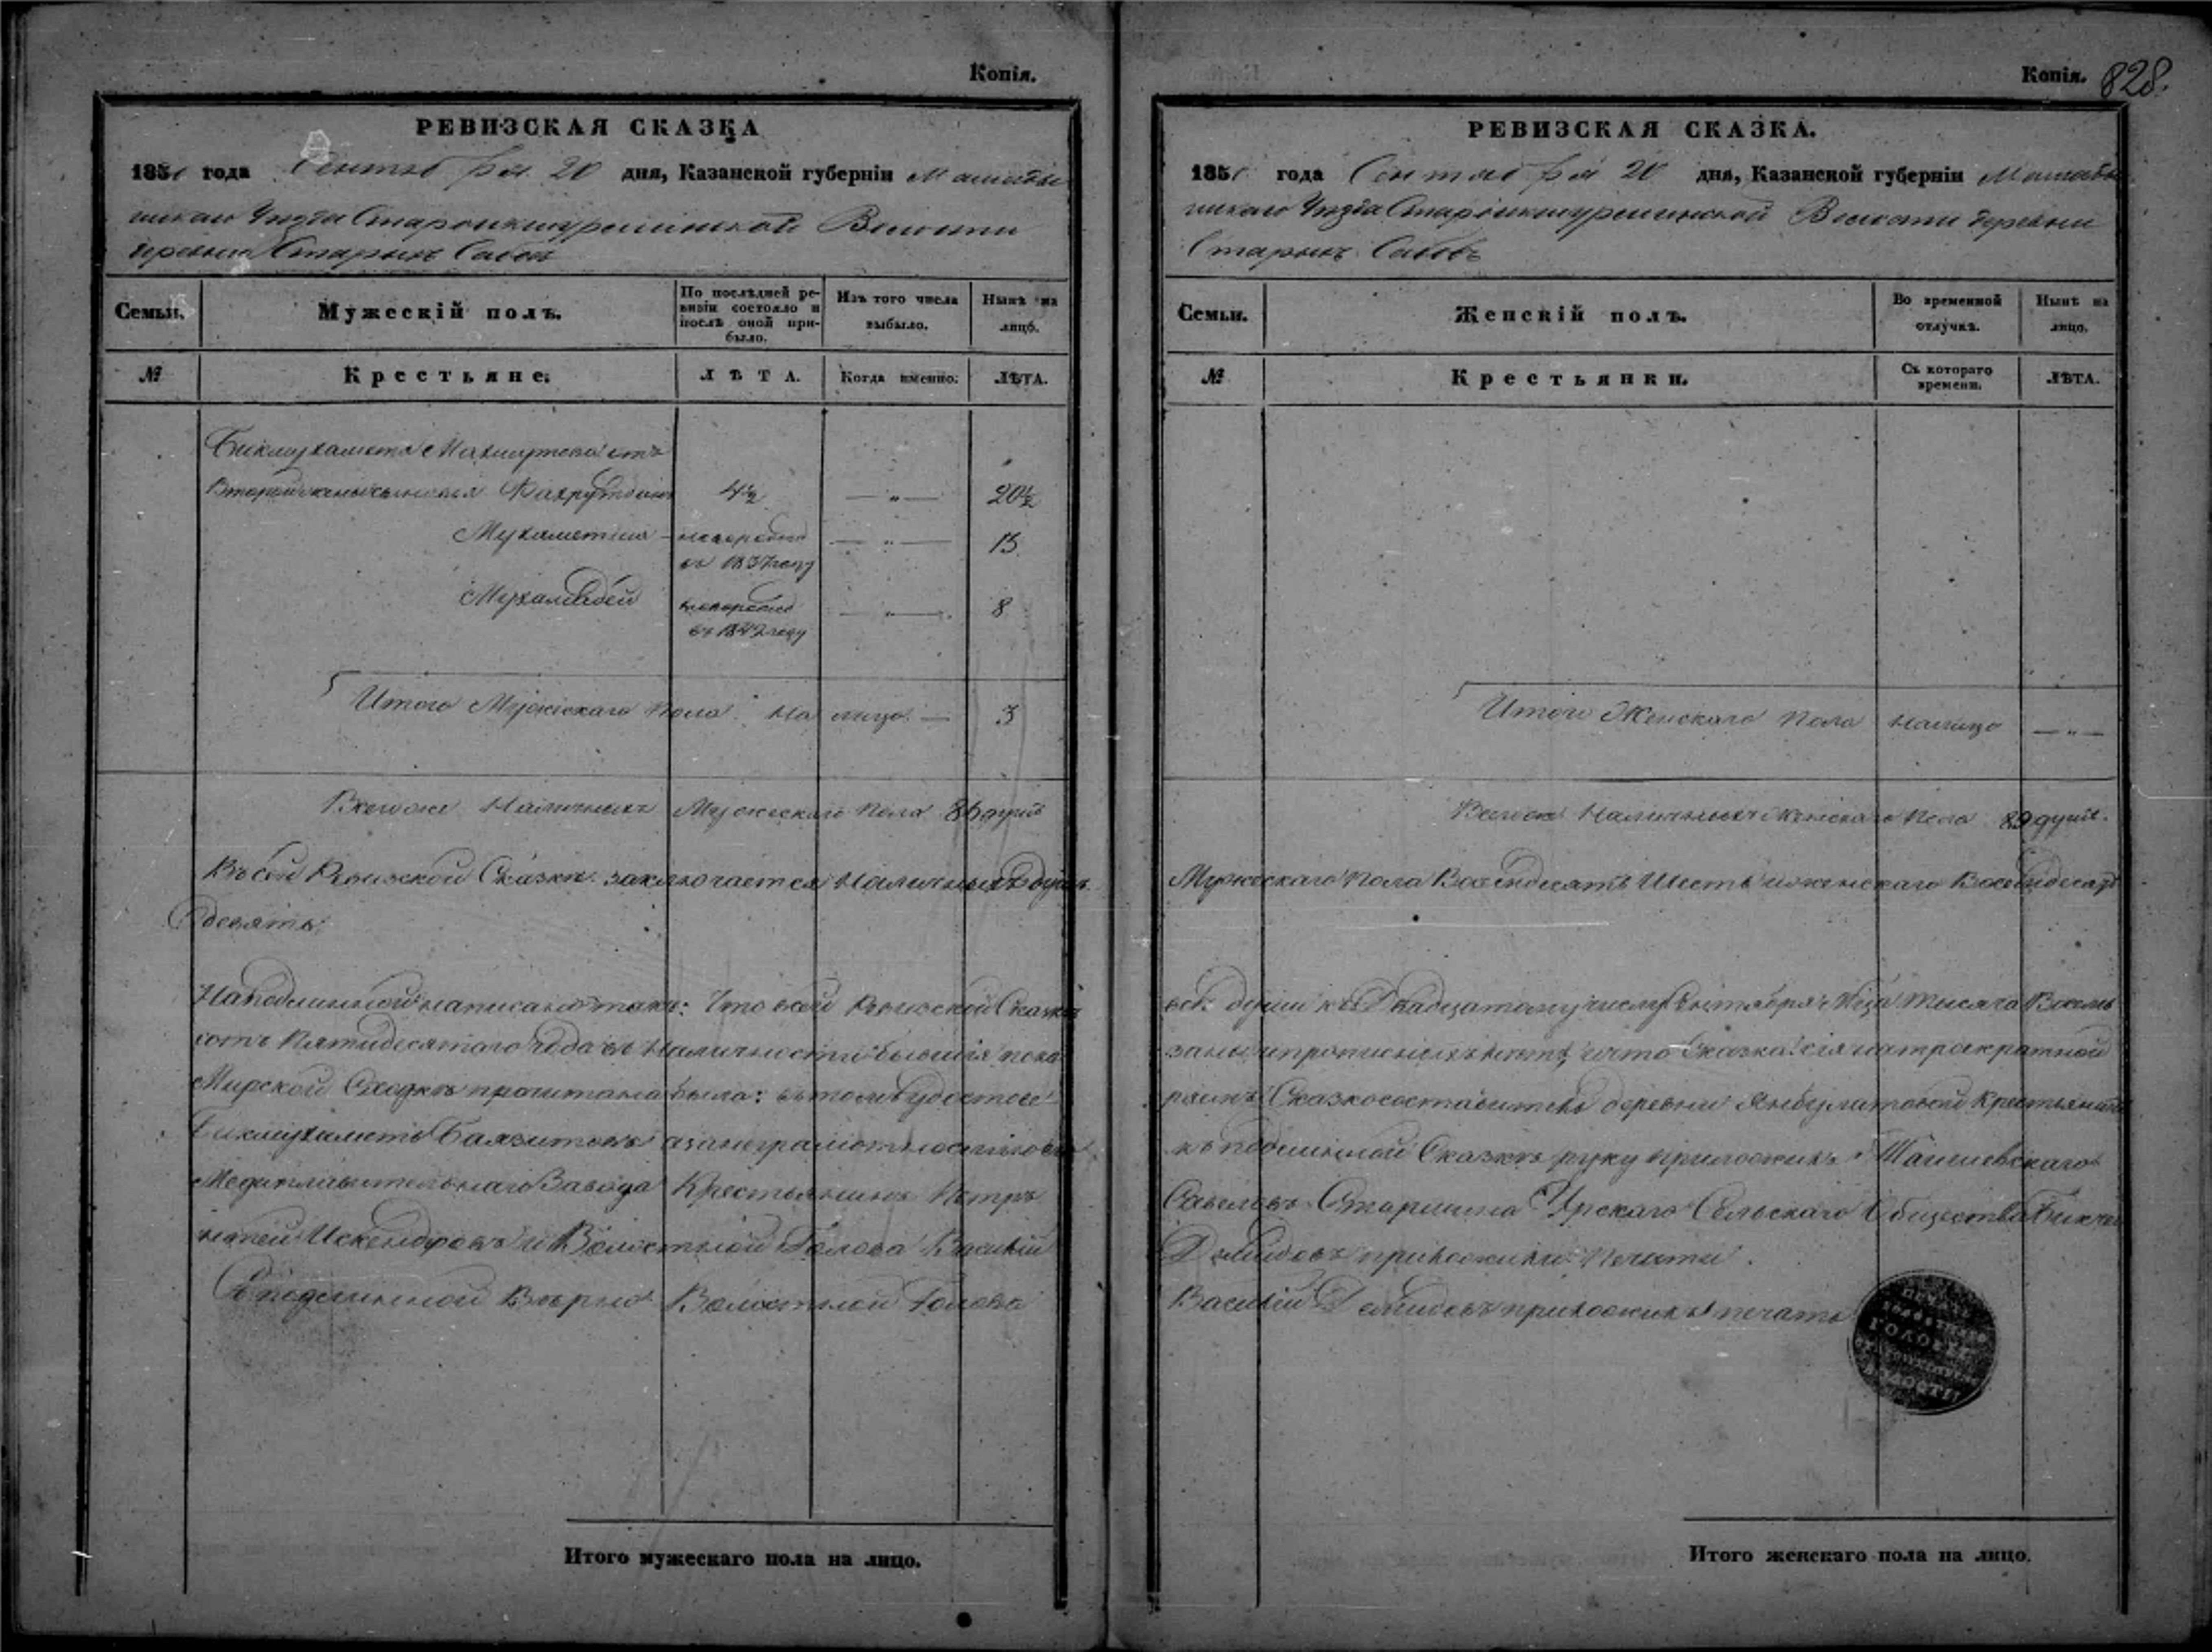 Копія.
РЕВИЗСКАЯ СКАЗКА
1850 года Сентября 20 дня, Казанской губерніи Мамадыш
скаго Уѣзда Староикшурминской Волости
деревни Старыхъ Сабовъ
Семьи.
Мужескій полъ.
По послѣдней ре-
визіи состояло и
послѣ оной при-
было.
Изъ того числа
выбыло.
Нынѣ на
лицо.
№
Крестьяне.
ЛѢТА.
Когда именно.
ЛѢТА.
Бикмухаметя Махмутова отъ
Второй жены сыновья Фахрутдинъ 4½ — „ — 20½
Мухаметша - новорожд — „ — 13
въ 1837 году
Мухамадей новорожд — „ — 8
въ 1842 году
Итого Мужескаго Пола На лицо — 3
Всего же Наличныхъ Мужескаго Пола 86 душъ
Въ сей Ревизской Сказки заключается Наличныхъ душъ
девять.
На подлинной написано тако: Что въ сей Ревизской Сказки
сотъ Пятидесятого года въ Наличности бывшія пока
Мирской Сходкѣ прочитана была: въ томъ удостове
Бикмухаметь Баязитовъ а за неграмотностію его
Медиплавительнаго Завода Крестьянинъ Петръ
Искендировъ и Волостной Голова Василий
Съ подлинной Вѣрно Волостной Голова
Итого мужескаго пола на лицо.
Копія. 828.
РЕВИЗСКАЯ СКАЗКА.
1850 года Сентября 20 дня, Казанской губерніи Мамады
шскаго Уѣзда Староикшурминской Волости деревни
Старыхъ Сабовъ
Семьи.
Женскій полъ.
Во временной
отлучкѣ.
Нынѣ на
лицо.
№
Крестьянки.
Съ котораго
времени.
ЛѢТА.
Итого Женскаго Пола налицо — „ —
Всего же Наличныхъ Женскаго Пола 89 душъ.
Мужескаго Пола Восемдесятъ Шесть и женскаго Восемдесятъ
всѣ души къ Двадцатому числу Сентября Мѣца тысяча Восемь
заны и прописныхъ нѣтъ, и что Сказка сія на троекратной
ряемъ Сказкосоставитель деревни Янбулатовой Крестьянинъ
къ подлинной Сказкѣ руку приложилъ Таишевскаго
Савеловъ Старшина Урскаго Сельскаго Общества Бикче
Демидовъ приложили Печати.
Василий Демидовъ приложилъ печать
ПЕЧАТЬ
ГОЛОВЫ
ВОЛОСТИ
Итого женскаго пола на лицо.